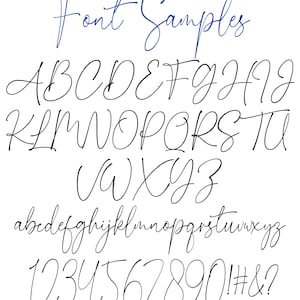 Font Samples
ABCDEFGHIJ
KLMNOPQRSTU
VWXYZ
abcdefghijklmnopqrstuvwxyz
1234567890!#&?